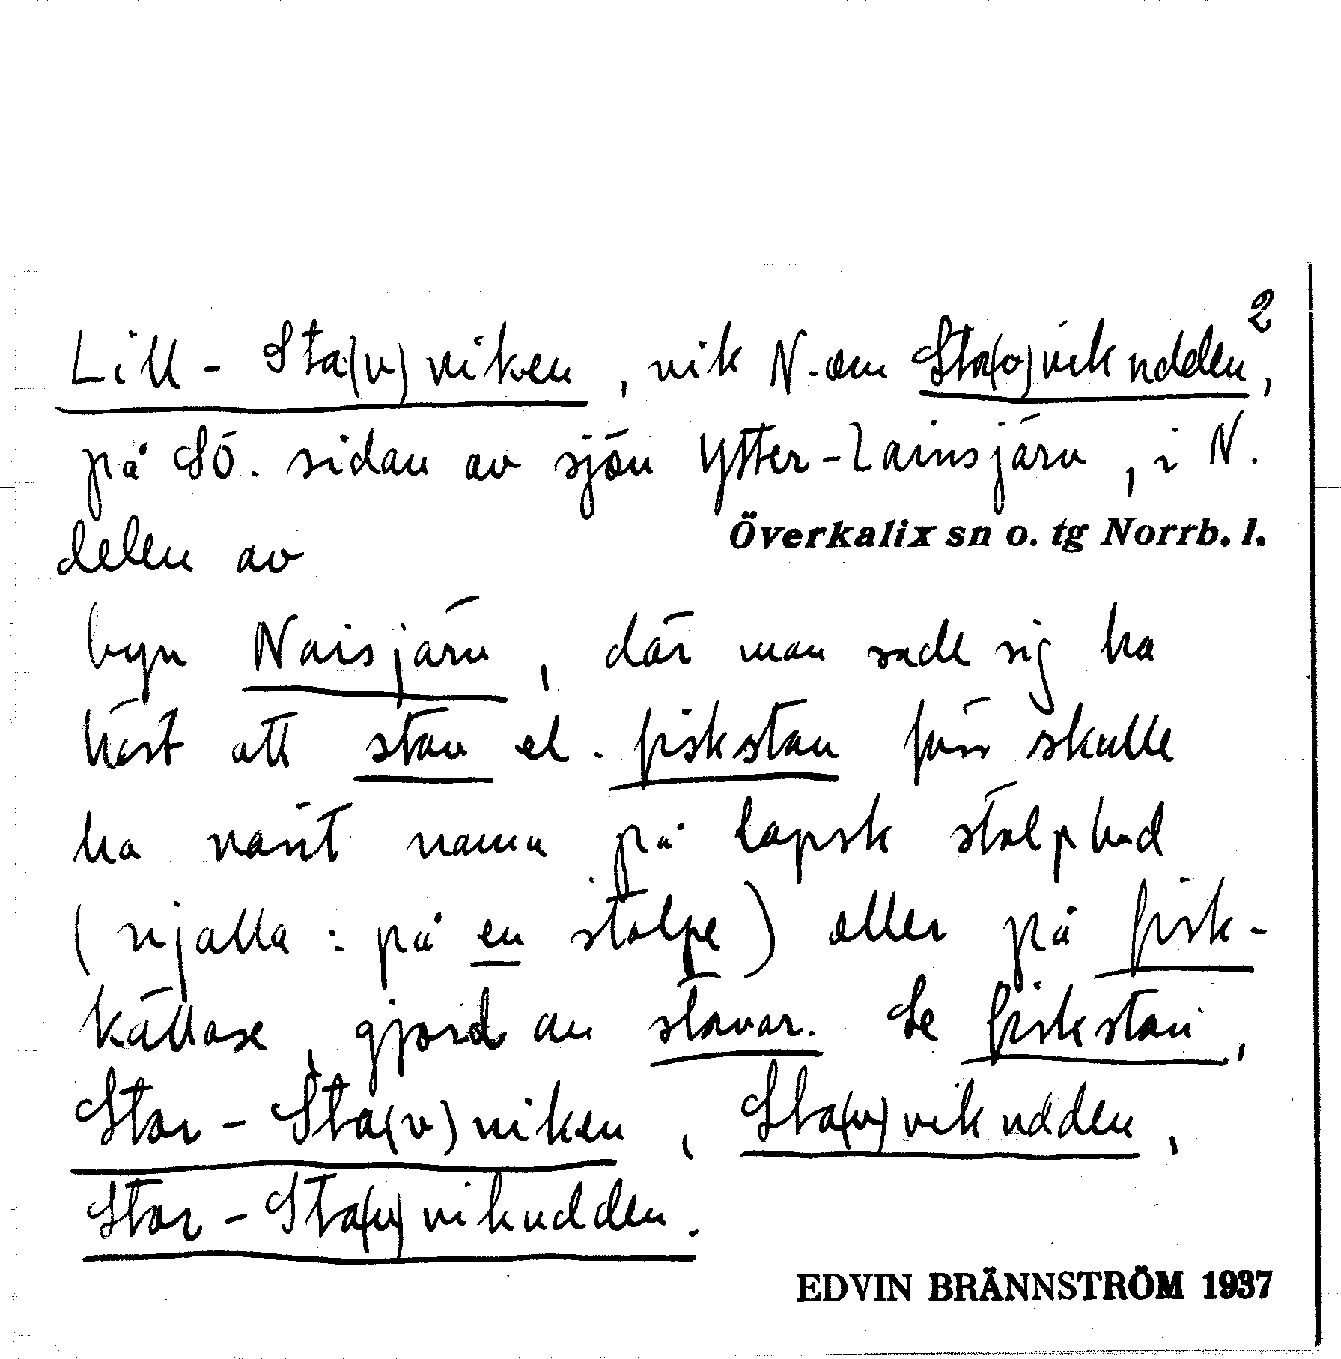 2
Lill-Sta(v)viken, vik N. om Sta(v)vikudden,
på SÖ. sidan av sjön Ytter-Lainsjärv, i N.
Överkalix sn o. tg Norrb. l.
delen av
byn Naisjärv, där man sade sig ha
hört att stav el. fiskstav förr skulle
ha varit namn på lapsk stolpbod
(njalla: på en stolpe) eller på fisk-
kättase, gjord av stavar. Se fiskstav,
Stor-Sta(v)viken, Sta(v)vikudden,
Stor-Sta(v)vikudden.
EDVIN BRÄNNSTRÖM 1937